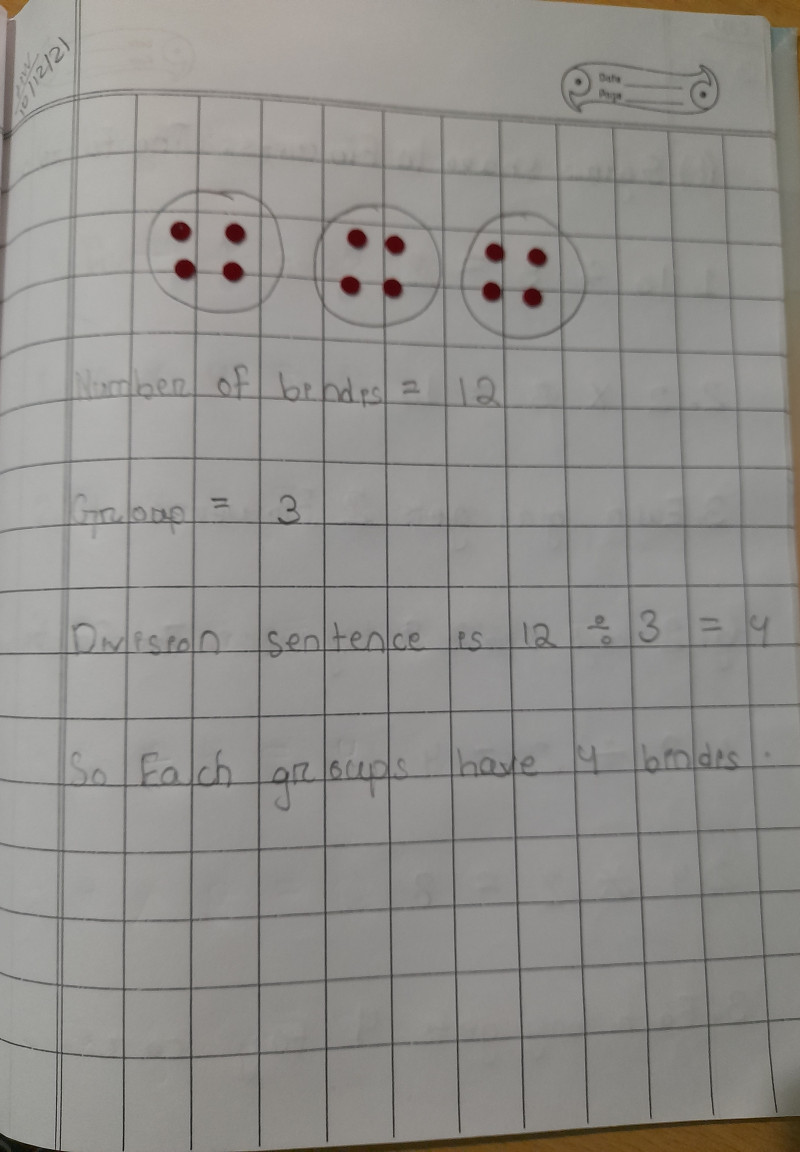 10/12/21
Date
Page
Number of bindis = 12
Group = 3
Division sentence is 12 ÷ 3 = 4
So Each groups have 4 bindis.